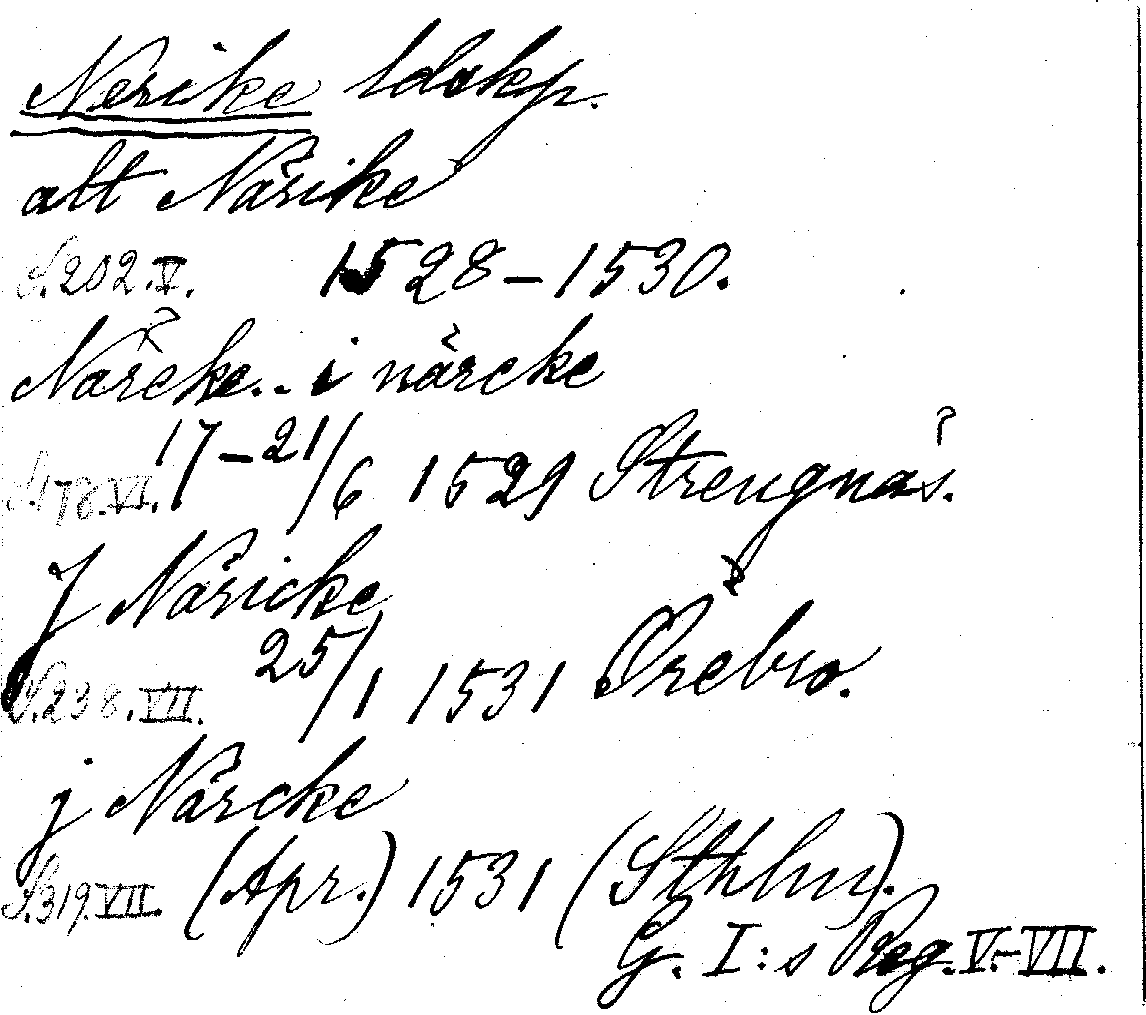 Nerike ldskp.
alt Närike
S. 202. V. 1528–1530.
Närcke.. i närcke
S. 178. VI. 17–21/6 1529 Strengnäs.
J Näricke
S. 238. VII. 25/1 1531 Örebro.
j Närcke
S. 319. VII. (Apr.) 1531 (Sthlm).
G. I:s Reg. V.–VII.